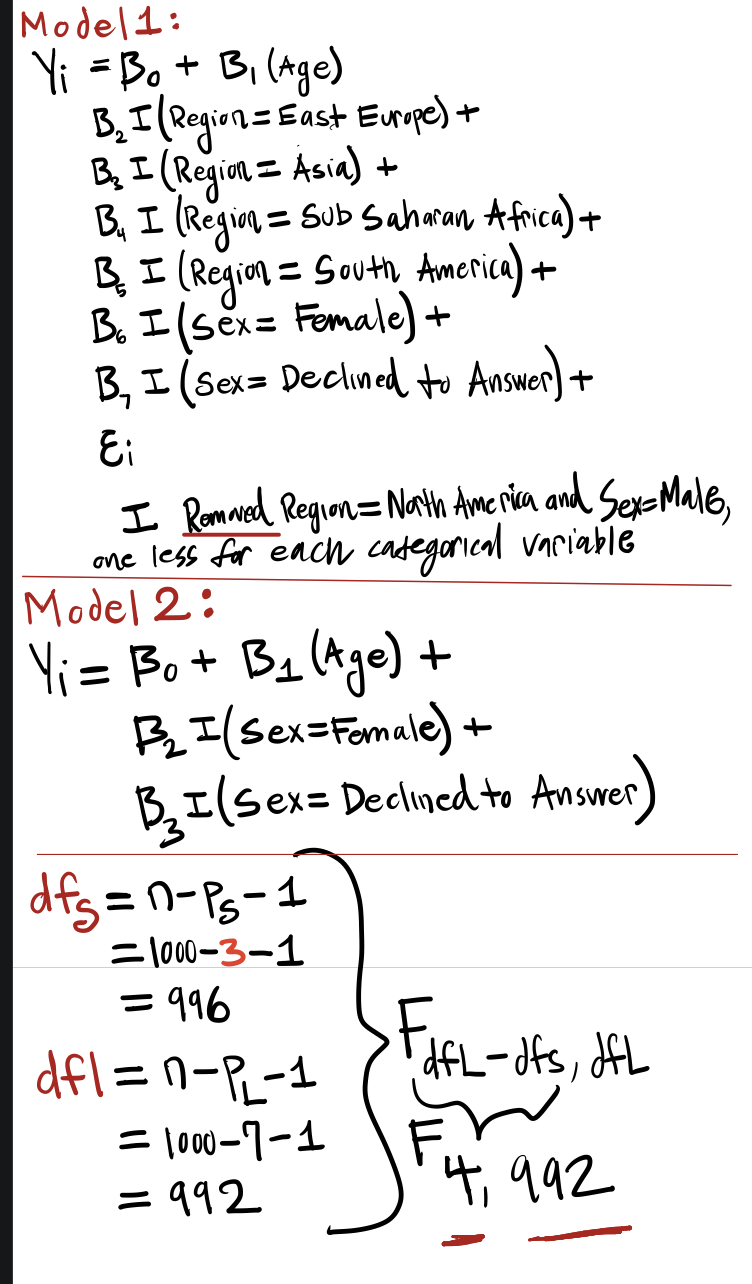 Model 1:
Yi = B0 + B1 (Age)
B2 I (Region = East Europe) +
B3 I (Region = Asia) +
B4 I (Region = Sub Saharan Africa) +
B5 I (Region = South America) +
B6 I (Sex = Female) +
B7 I (Sex = Declined to Answer) +
εi
I Removed Region = North America and Sex = Male,
one less for each categorical variable
Model 2:
Yi = B0 + B1 (Age) +
B2 I (Sex = Female) +
B3 I (Sex = Declined to Answer)
dfs = n - Ps - 1
= 1000 - 3 - 1
= 996
dfl = n - PL - 1
= 1000 - 7 - 1
= 992
F dfL - dfs, dfL
F 4, 992